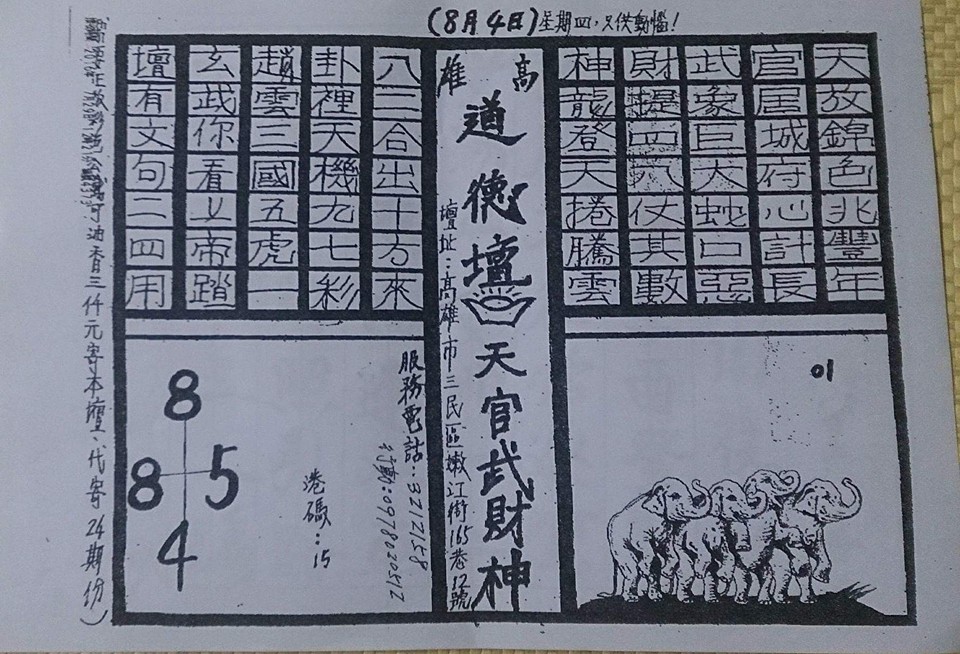 (8月4日)星期四，只供動惱！
天放錦色兆豐年
官居城府心計長
武象巨大蛇口惡
財提四六仗其數
神龍登天捲騰雲
01
高雄
道德壇
天官武財神
壇址：高雄市三民區嫩江街165巷12號
八三合出十方來
卦裡天機九七彩
趙雲三國五虎一
玄武你看上帝踏
壇有文句二四用
服務電話：3212158
行動：0978020512
港碼：15
8
8 5
4
可油香三仟元寄本壇、代寄24期份)